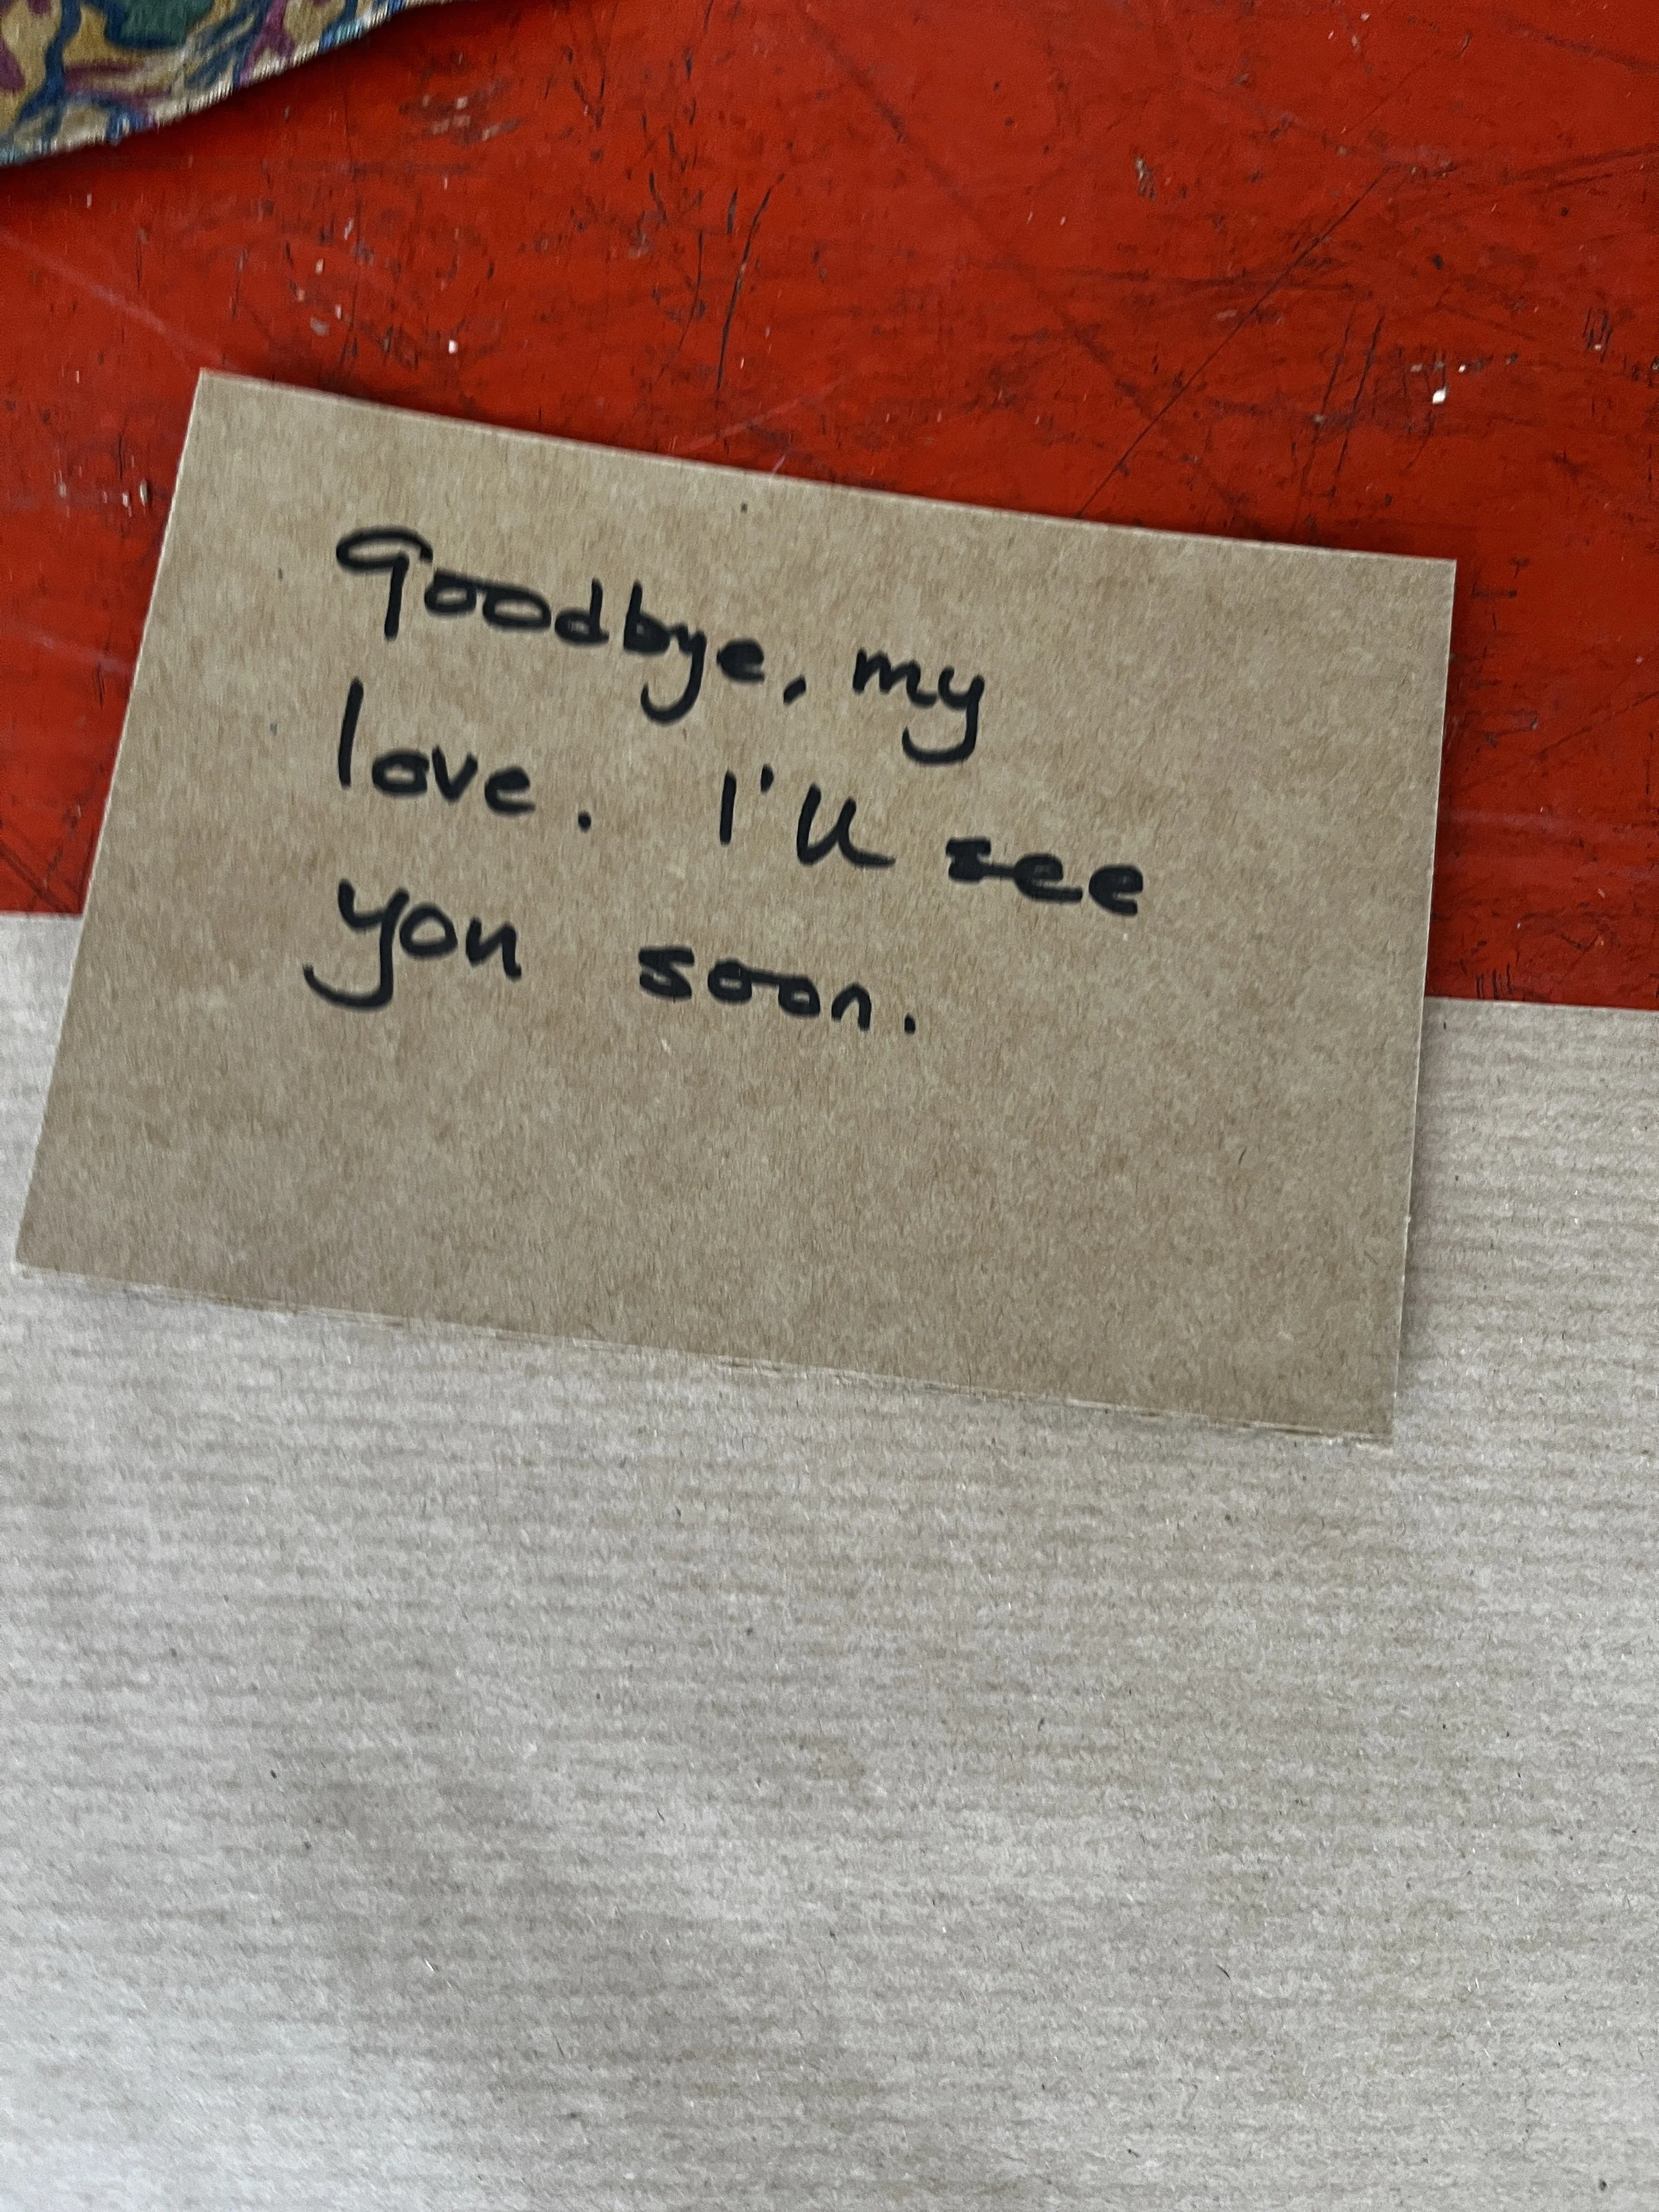 Goodbye, my
love. I'll see
you soon.